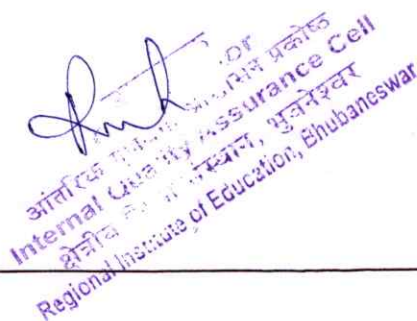 आंतरिक
प्रकोष्ठ
Internal Quality Assurance Cell
क्षेत्रीय संस्थान, भुवनेश्वर
Regional Institute of Education, Bhubaneswar